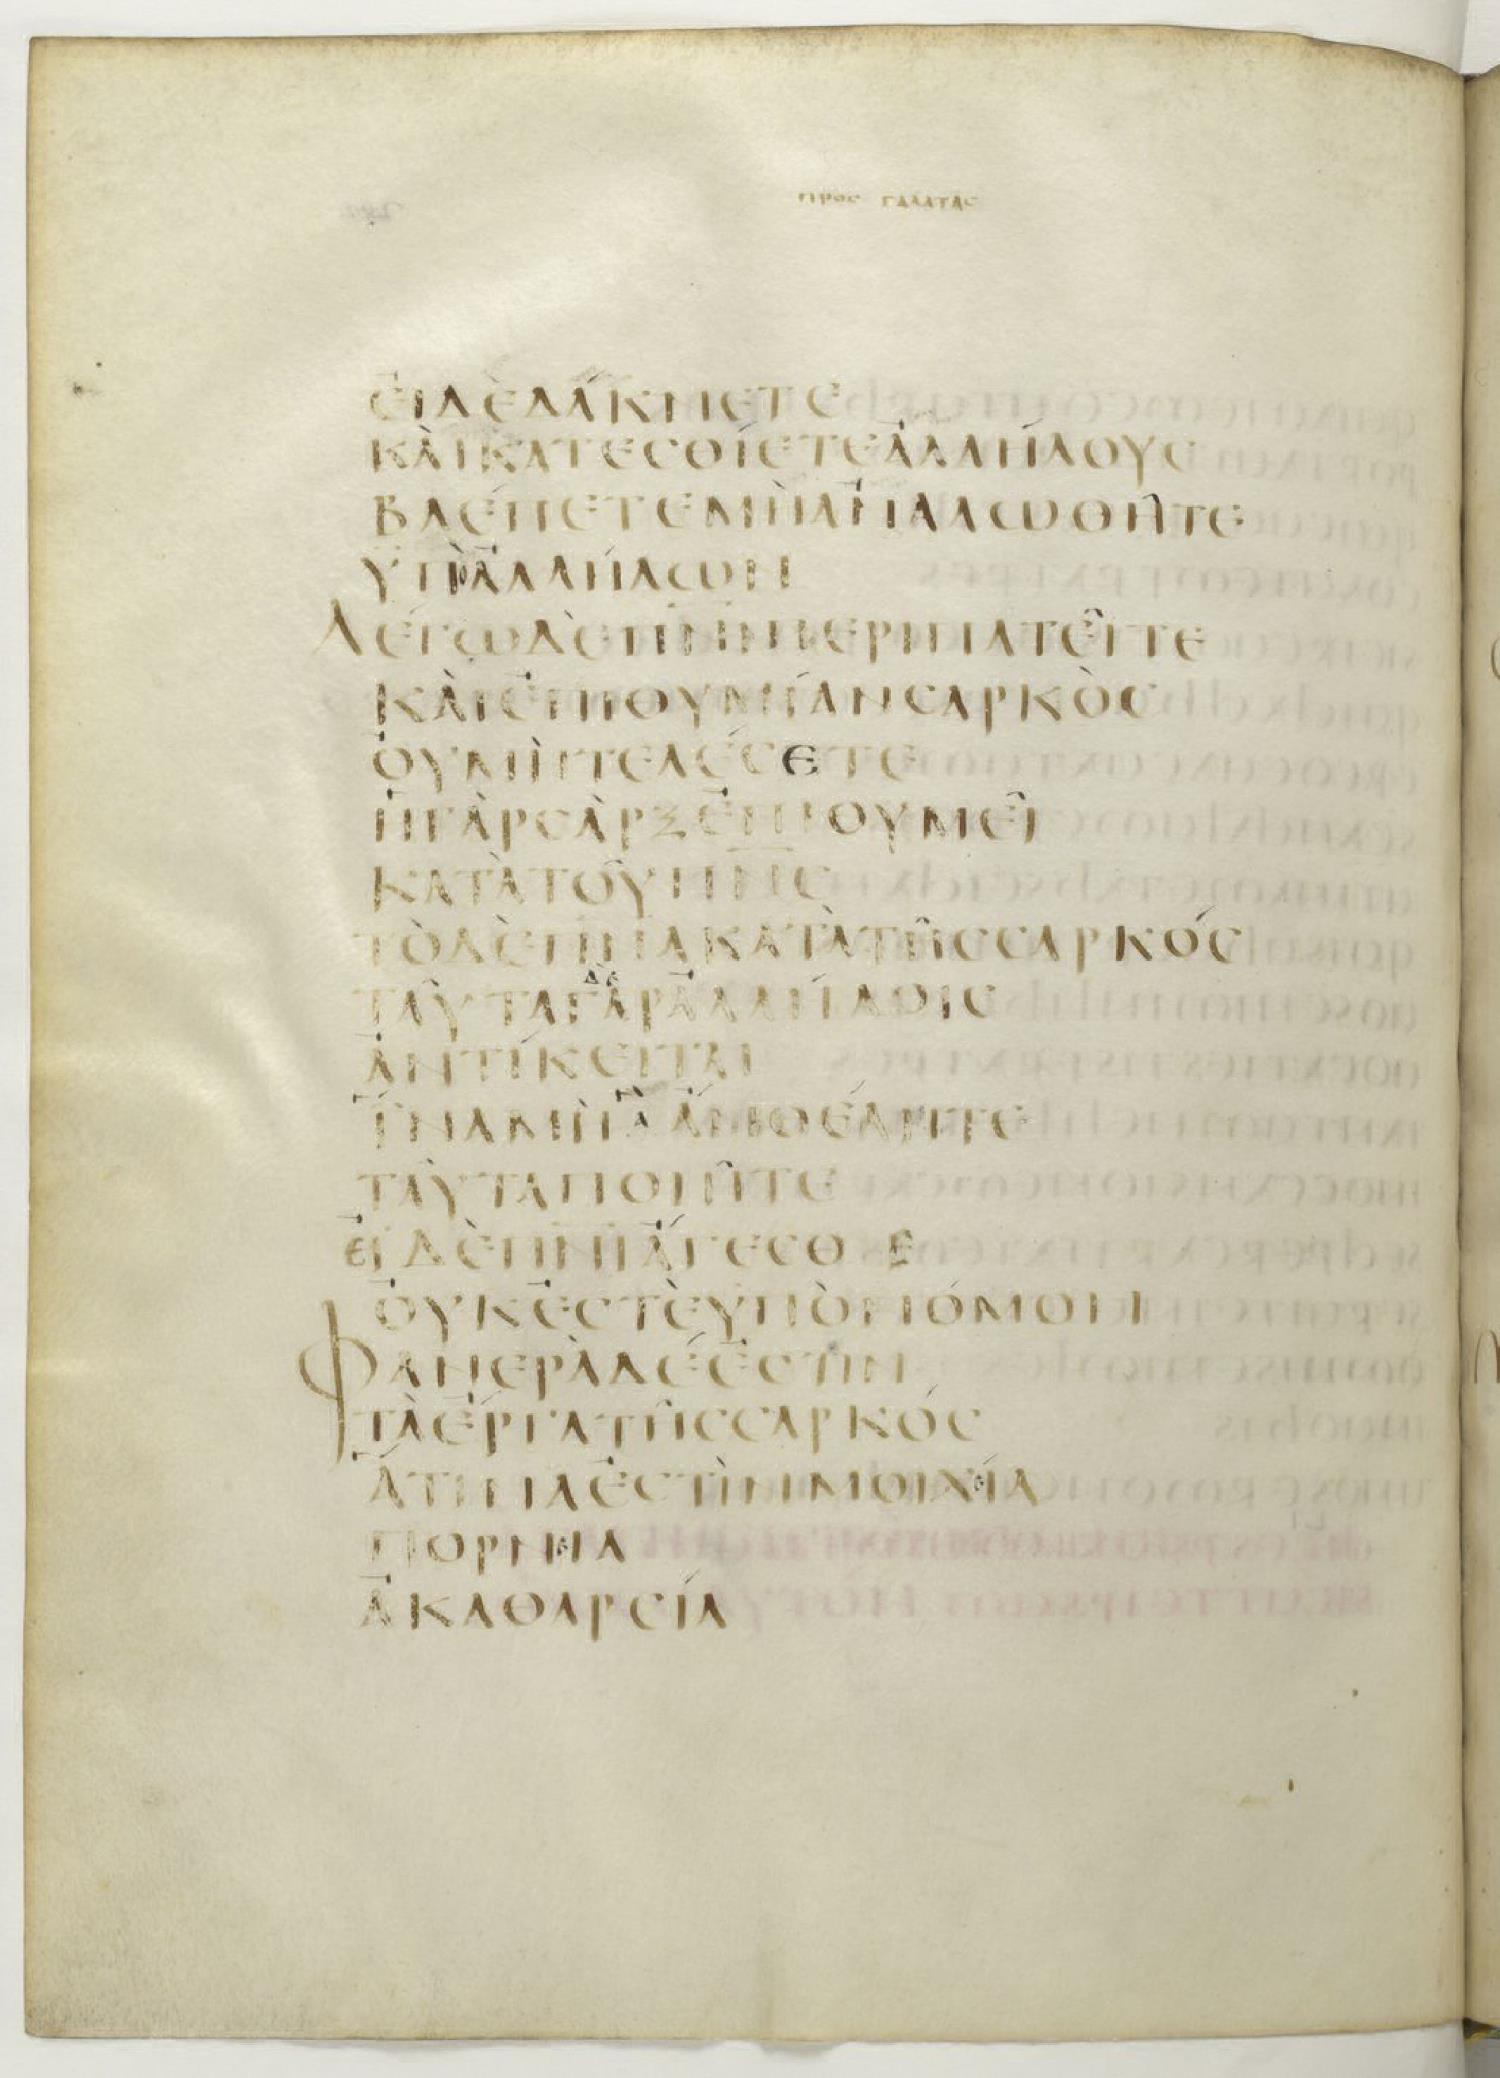 ΠΡΟΣ ΓΑΛΑΤΑΣ
ΕΙΔΕΔΑΚΝΕΤΕ
ΚΑΙΚΑΤΕΣΘΙΕΤΕΑΛΛΗΛΟΥΣ
ΒΛΕΠΕΤΕΜΗΑΝΑΛΩΘΗΤΕ
ΥΠΑΛΛΗΛΩΝ
ΛΕΓΩΔΕΠΝΙΠΕΡΙΠΑΤΕΙΤΕ
ΚΑΙΕΠΙΘΥΜΙΑΝΣΑΡΚΟΣ
ΟΥΜΗΤΕΛΕΣΕΤΕ
ΗΓΑΡΣΑΡΞΕΠΙΘΥΜΕΙ
ΚΑΤΑΤΟΥΠΝΣ
ΤΟΔΕΠΝΑΚΑΤΑΤΗΣΣΑΡΚΟΣ
ΤΑΥΤΑΓΑΡΑΛΛΗΛΟΙΣ
ΑΝΤΙΚΕΙΤΑΙ
ΙΝΑΜΗΑΑΝΘΕΛΗΤΕ
ΤΑΥΤΑΠΟΙΗΤΕ
ΕΙΔΕΠΝΙΑΓΕΣΘΕ
ΟΥΚΕΣΤΕΥΠΟΝΟΜΟΝ
ΦΑΝΕΡΑΔΕΕΣΤΙΝ
ΤΑΕΡΓΑΤΗΣΣΑΡΚΟΣ
ΑΤΙΝΑΕΣΤΙΝΜΟΙΧΙΑ
ΠΟΡΝΙΑ
ΑΚΑΘΑΡΣΙΑ